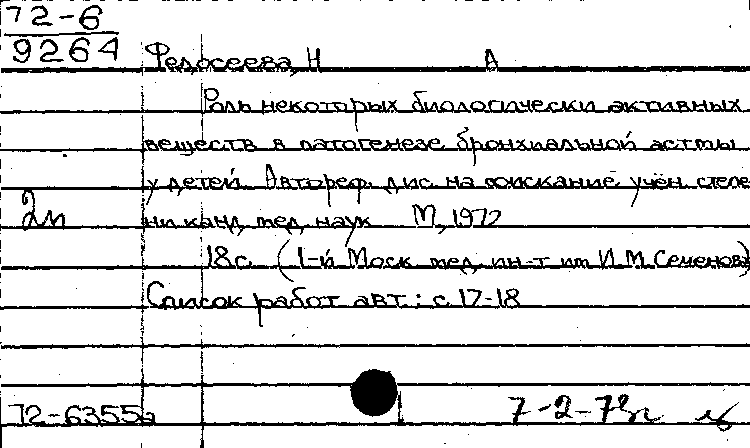 72-6
9264
Федосеева, Н А
Роль некоторых биологически активных
веществ в патогенезе бронхиальной астмы
у детей. Автореф. дис. на соискание учён. степе
2п ни канд. мед. наук М., 1972
18 с. (1-й Моск. мед. ин-т им И.М. Сеченова)
Список работ авт.: с. 17-18
72-6355а 7-2-73